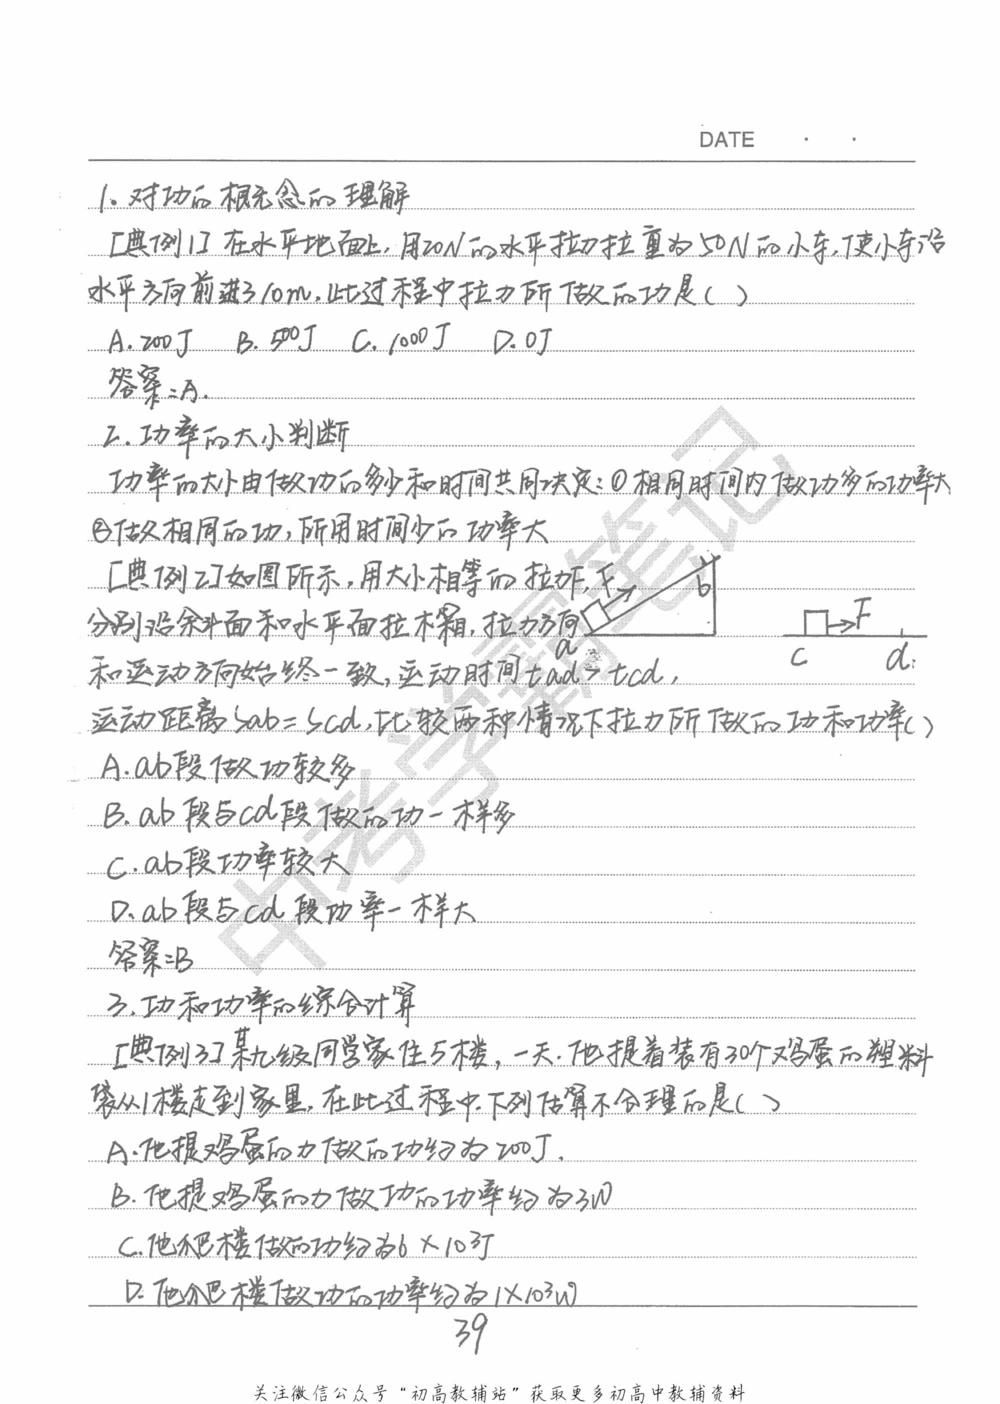 DATE · ·
1. 对功的概念的理解
[典例1] 在水平地面上, 用20N的水平拉力拉重为50N的小车, 使小车沿
水平方向前进310m, 此过程中拉力所做的功是( )
A. 200J B. 500J C. 1000J D. 0J
答案:A.
2. 功率的大小判断
功率的大小由做功的多少和时间共同决定:①相同时间内做功多的功率大
②做相同的功, 所用时间少的功率大
[典例2]如图所示, 用大小相等的拉力F,
分别沿斜面和水平面拉木箱, 拉力方向
F b a F c d
和运动方向始终一致, 运动时间tad>tcd,
运动距离Sab=Scd, 比较两种情况下拉力所做的功和功率( )
A. ab段做功较多
B. ab段与cd段做的功一样多
C. ab段功率较大
D. ab段与cd段功率一样大
答案:B
3. 功和功率的综合计算
[典例3]某九级同学家住5楼, 一天. 他提着装有30个鸡蛋的塑料
袋从1楼走到家里, 在此过程中. 下列估算不合理的是( )
A. 他提鸡蛋的力做的功约为200J.
B. 他提鸡蛋的力做功的功率约为3W
C. 他爬楼做的功约为6×10³J
D. 他爬楼做功的功率约为1×10³W
39
中考学霸笔记
关注微信公众号“初高教辅站”获取更多初高中教辅资料